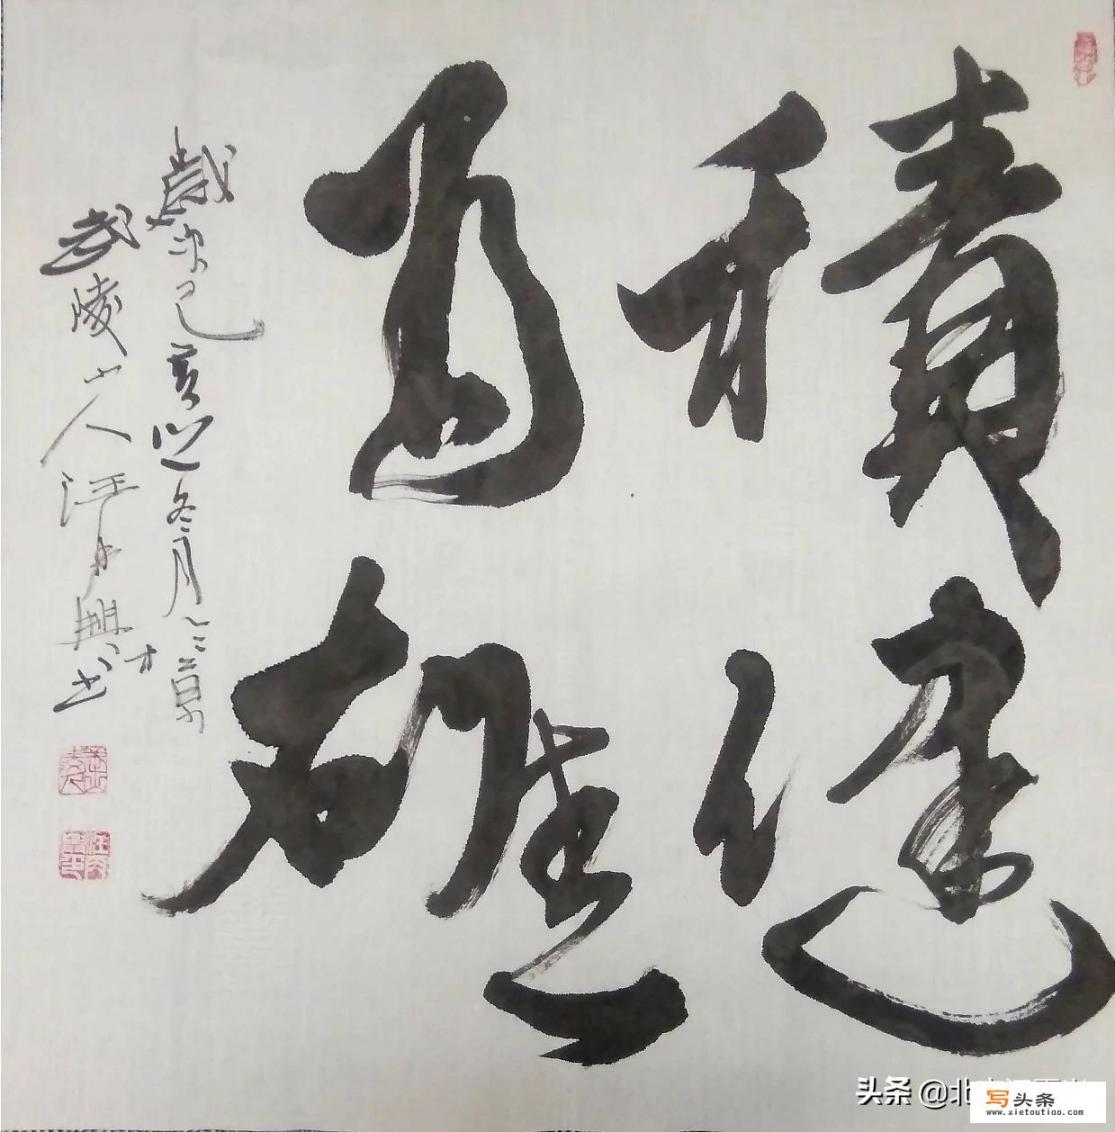 積健
為雄
歲次己亥之冬月
武陵山人汪
書
头条 @北
写头条
www.xietoutiao.com